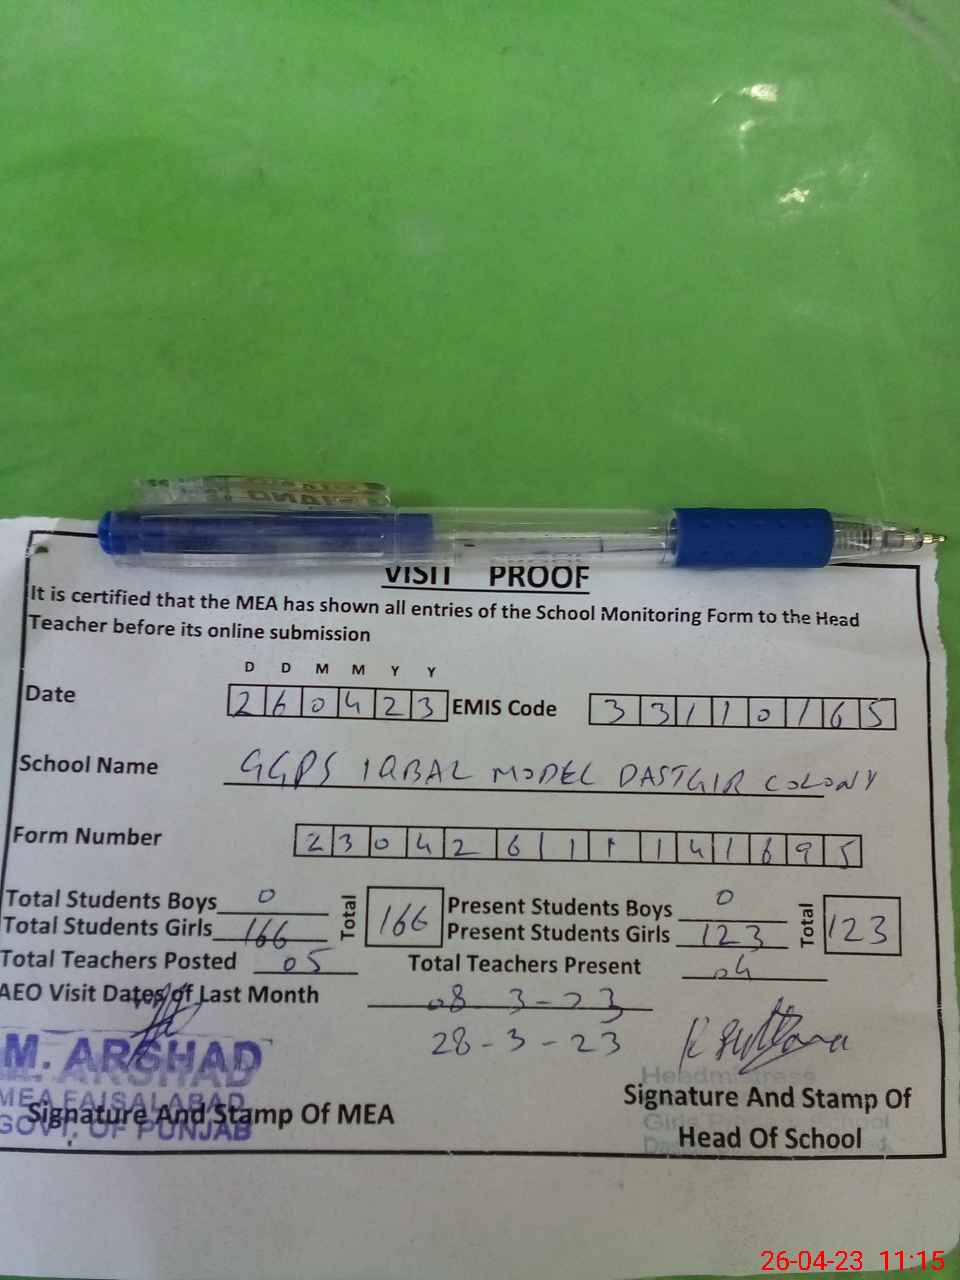 VISIT PROOF
It is certified that the MEA has shown all entries of the School Monitoring Form to the Head
Teacher before its online submission
D D M M Y Y
Date 260423 EMIS Code 33110165
School Name GGPS IQBAL MODEL DASTGIR COLONY
Form Number 23042611141695
Total Students Boys 0 Total 166 Present Students Boys 0 Total 123
Total Students Girls 166 Present Students Girls 123
Total Teachers Posted 05 Total Teachers Present 04
AEO Visit Dates of Last Month 08 3-23
28-3-23
M. ARSHAD
MEA FAISALABAD
GOVT. OF PUNJAB
Signature And Stamp Of MEA
Headmistress
Signature And Stamp Of
Head Of School
26-04-23 11:15